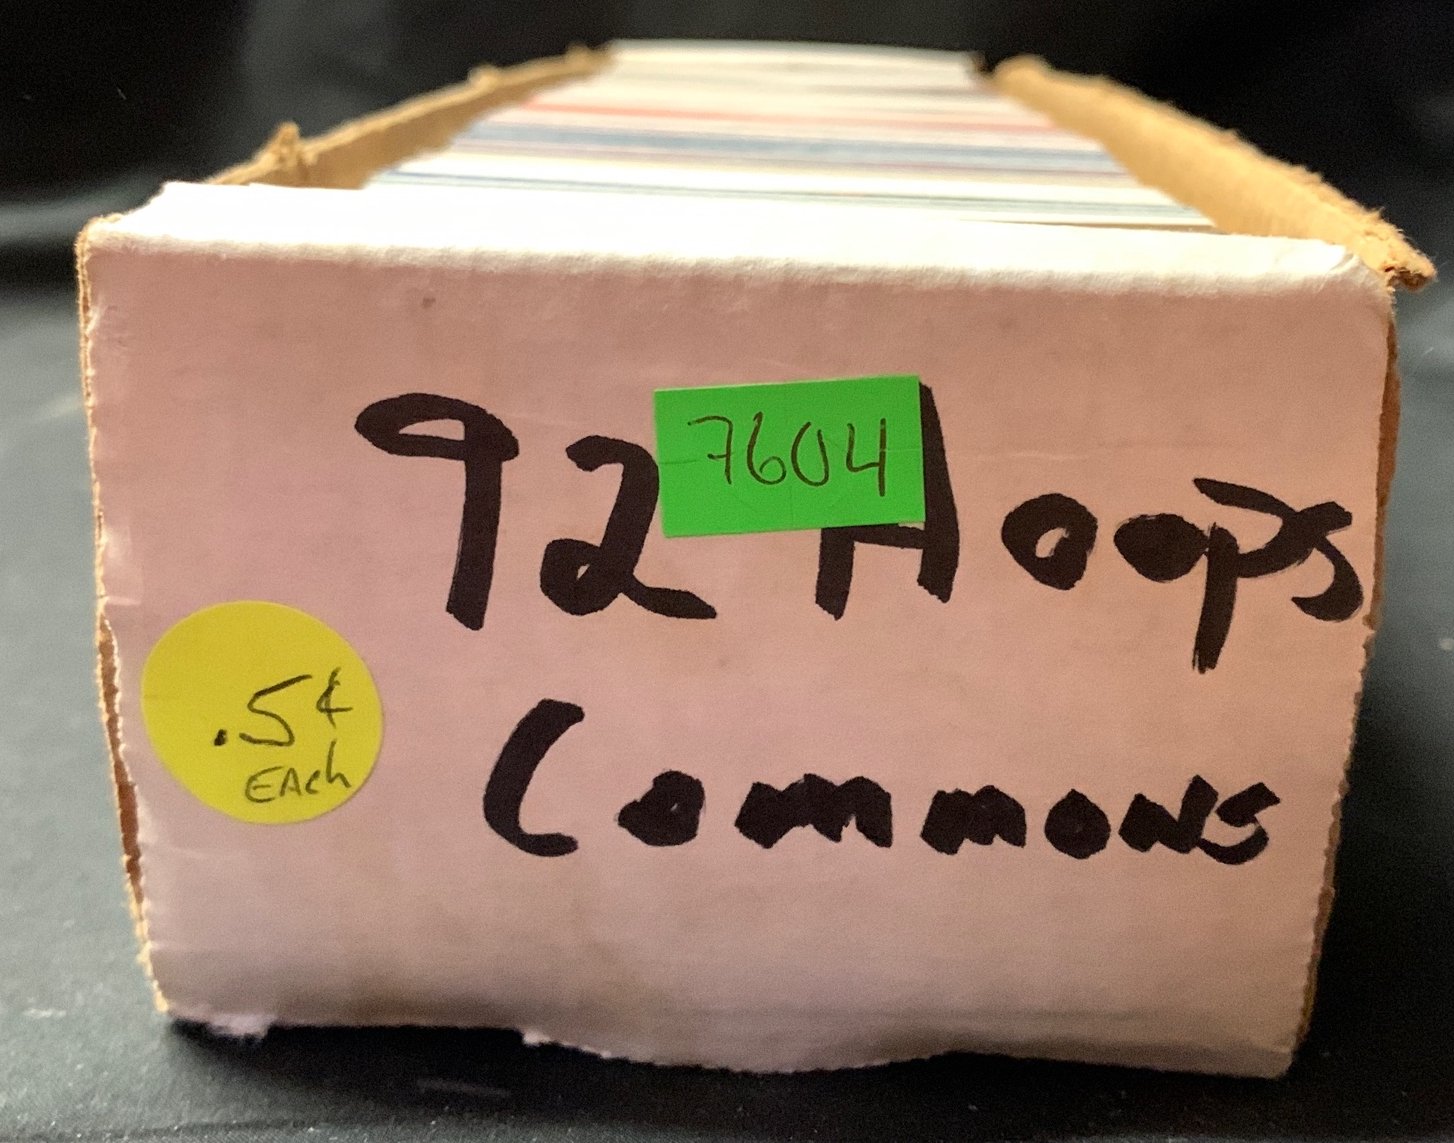 7604
92 Hoops
Commons
.5¢
EACh